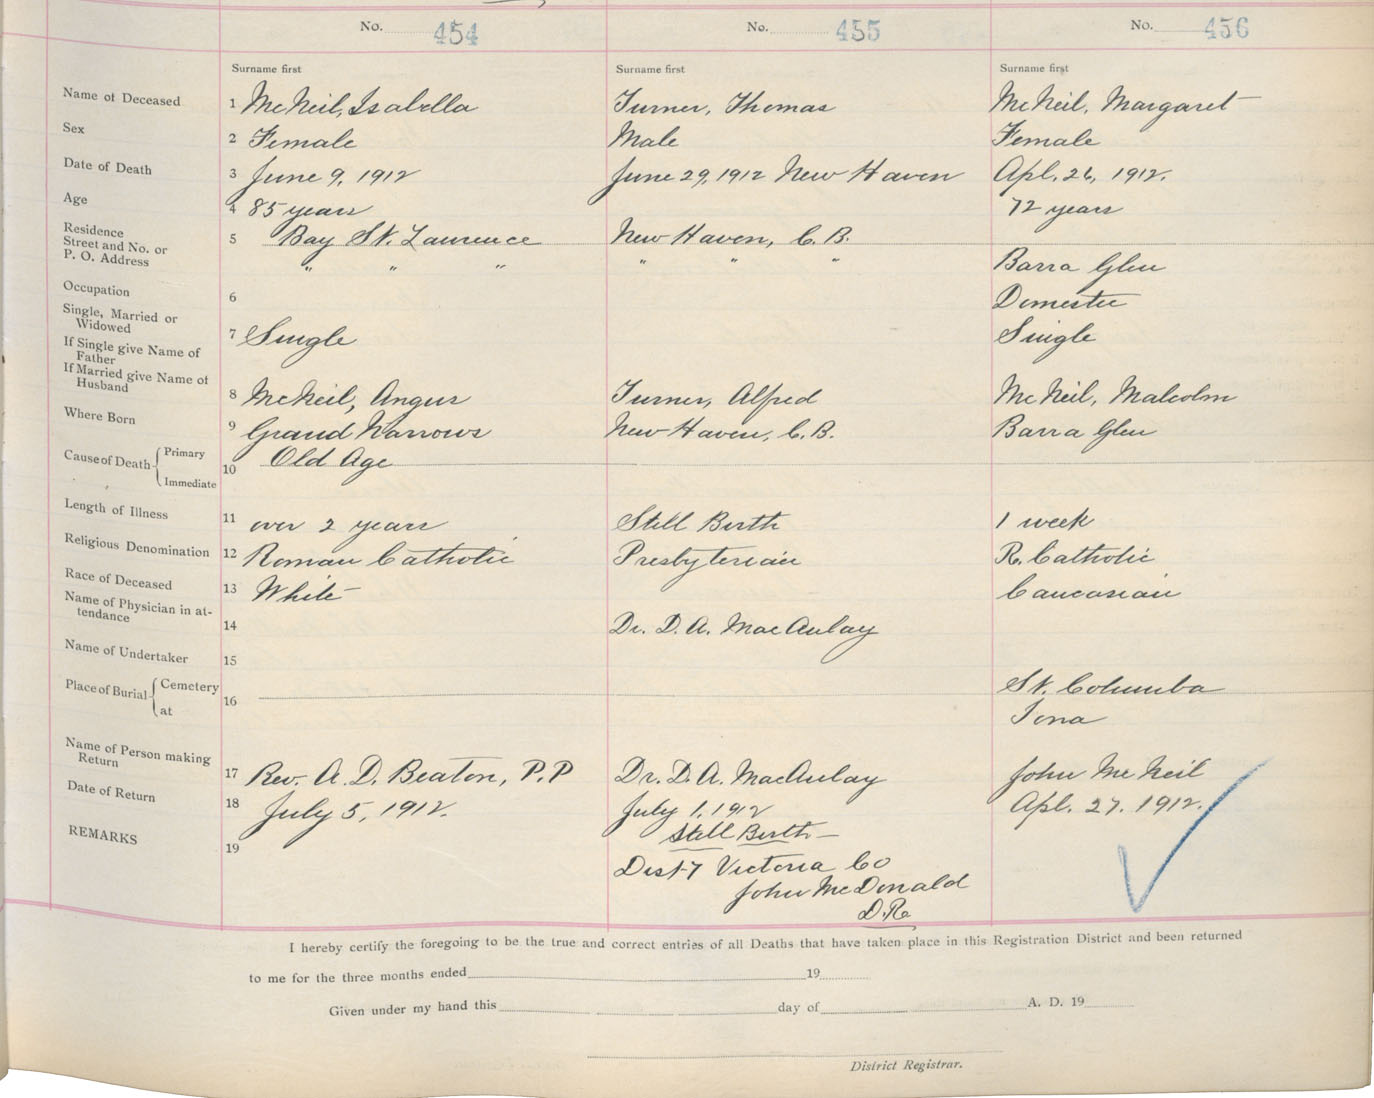 No. 454 No. 455 No. 456
Surname first Surname first Surname first
Name of Deceased 1 McNeil, Isabella Turner, Thomas McNeil, Margaret
Sex 2 Female Male Female
Date of Death 3 June 9, 1912 June 29, 1912 New Haven Apl. 26, 1912.
Age 4 85 years 72 years
Residence
Street and No. or 5 Bay St. Lawrence New Haven, C. B.
P. O. Address " " " " " " Barra Glen
Occupation 6 Domestic
Single, Married or
Widowed 7 Single Single
If Single give Name of
Father
If Married give Name of
Husband 8 McNeil, Angus Turner, Alfred McNeil, Malcolm
Where Born 9 Grand Narrows New Haven, C. B. Barra Glen
Cause of Death Primary 10 Old Age
Immediate
Length of Illness 11 over 2 years Still Birth 1 week
Religious Denomination 12 Roman Catholic Presbyterian R. Catholic
Race of Deceased 13 White Caucasian
Name of Physician in at-
tendance 14 Dr. D. A. MacAulay
Name of Undertaker 15
Place of Burial Cemetery 16 St. Columba
at Iona
Name of Person making
Return 17 Rev. A. D. Beaton, P.P Dr. D. A. MacAulay John McNeil
Date of Return 18 July 5, 1912. July 1, 1912 Apl. 27. 1912.
REMARKS 19 Still Birth
Dist 7 Victoria Co
John McDonald
D. R.
I hereby certify the foregoing to be the true and correct entries of all Deaths that have taken place in this Registration District and been returned
to me for the three months ended 19
Given under my hand this day of A. D. 19
District Registrar.